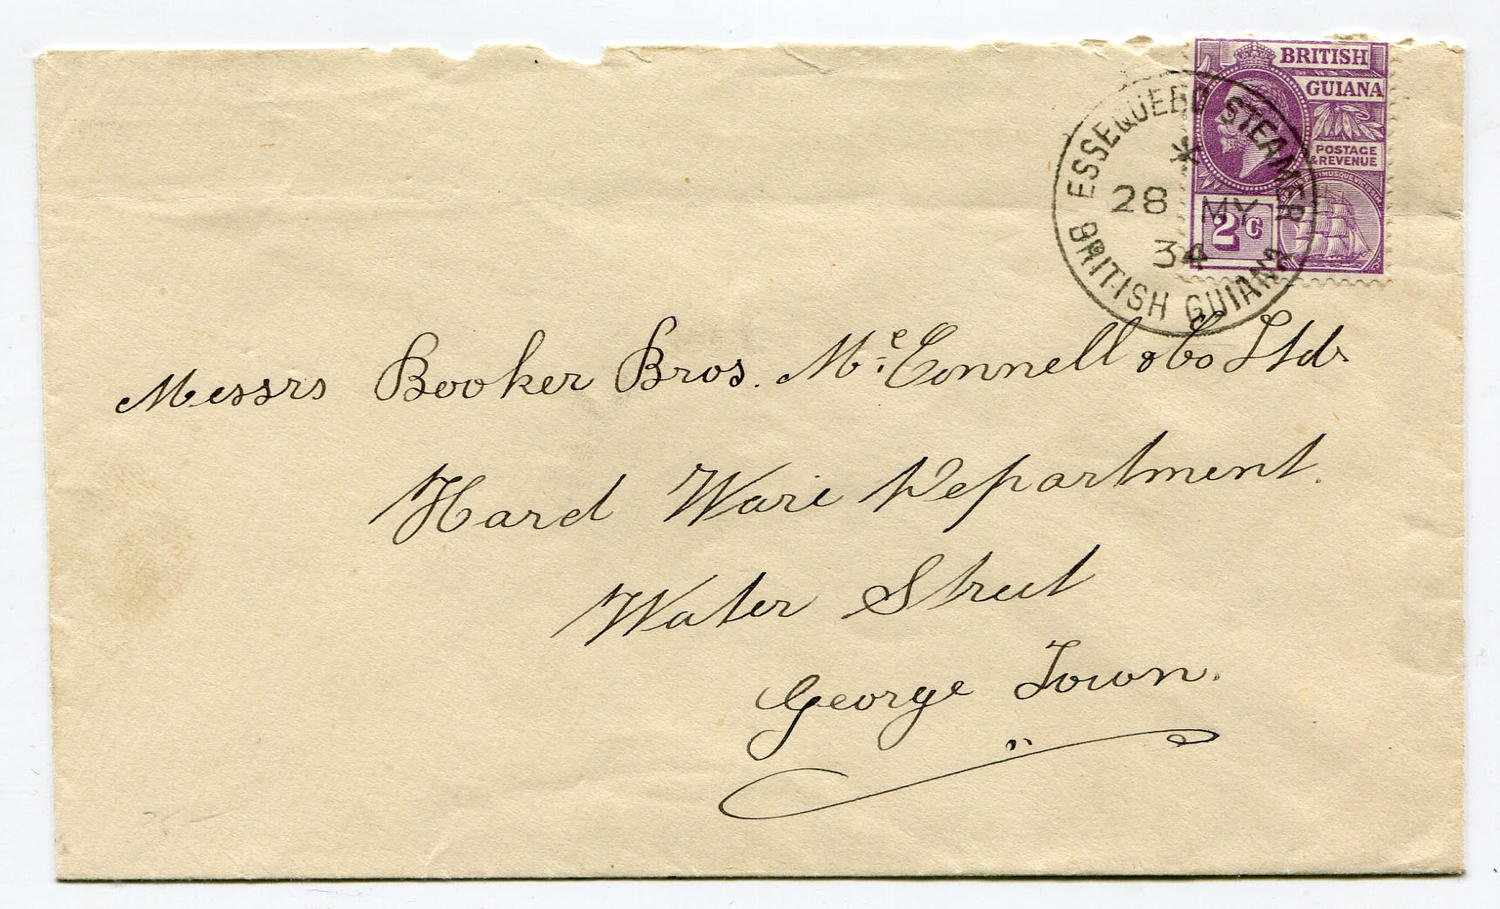 BRITISH
GUIANA
POSTAGE
& REVENUE
2c
ESSEQUEBO STEAMER
*
28 MY
34
BRITISH GUIANA
Messrs Booker Bros. Mc.Connell & Co Ltd.
Hard Ware Department.
Water Street
George Town.